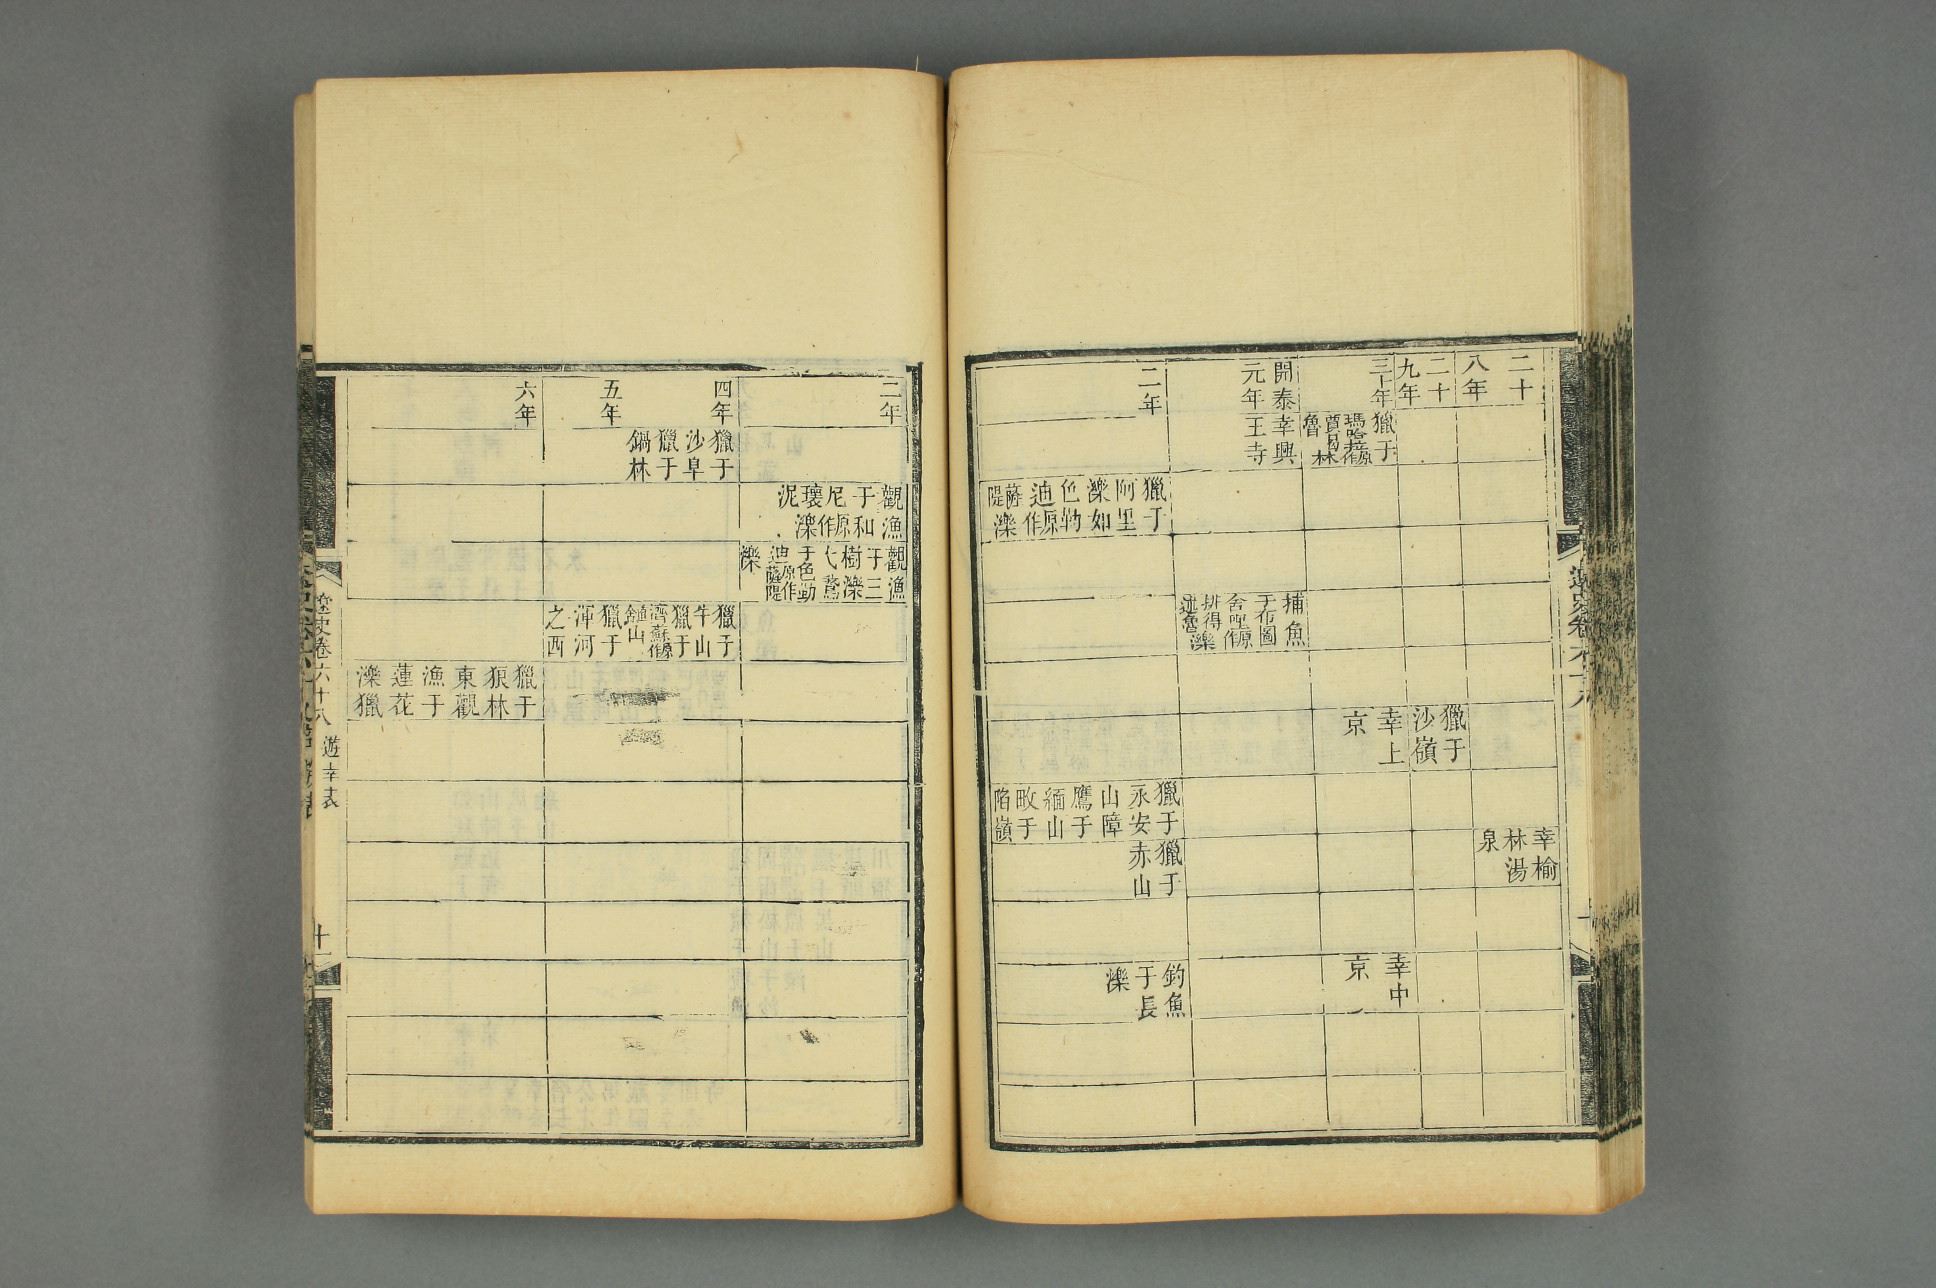 二十
八年
幸榆
林湯
泉
二十
九年
獵于
沙嶺
三十年
獵于
幸上
京
幸中
京
開泰
元年
幸興
王寺
捕魚
于布圖
舍哩原作
排得
述魯濼
二年
獵于
阿里
濼如
色勒
迪原作
薛隄濼
獵于
永安
山障
鷹于
緬山
畋于
陷嶺
獵于
赤山
釣魚
于長
濼
二年
觀漁
于和
尼原作
瓌泥濼
觀漁
于三
樹濼
弋鵞
于色勒
迪原作薩隄
濼
四年
獵于
沙阜
獵于
鍋林
獵于
牛山
獵于
濟蘇原作
山
獵于
渾河
之西
五年
六年
獵于
狼林
東觀
漁于
蓮花
濼獵
遼史卷六十八 遊幸表 十一